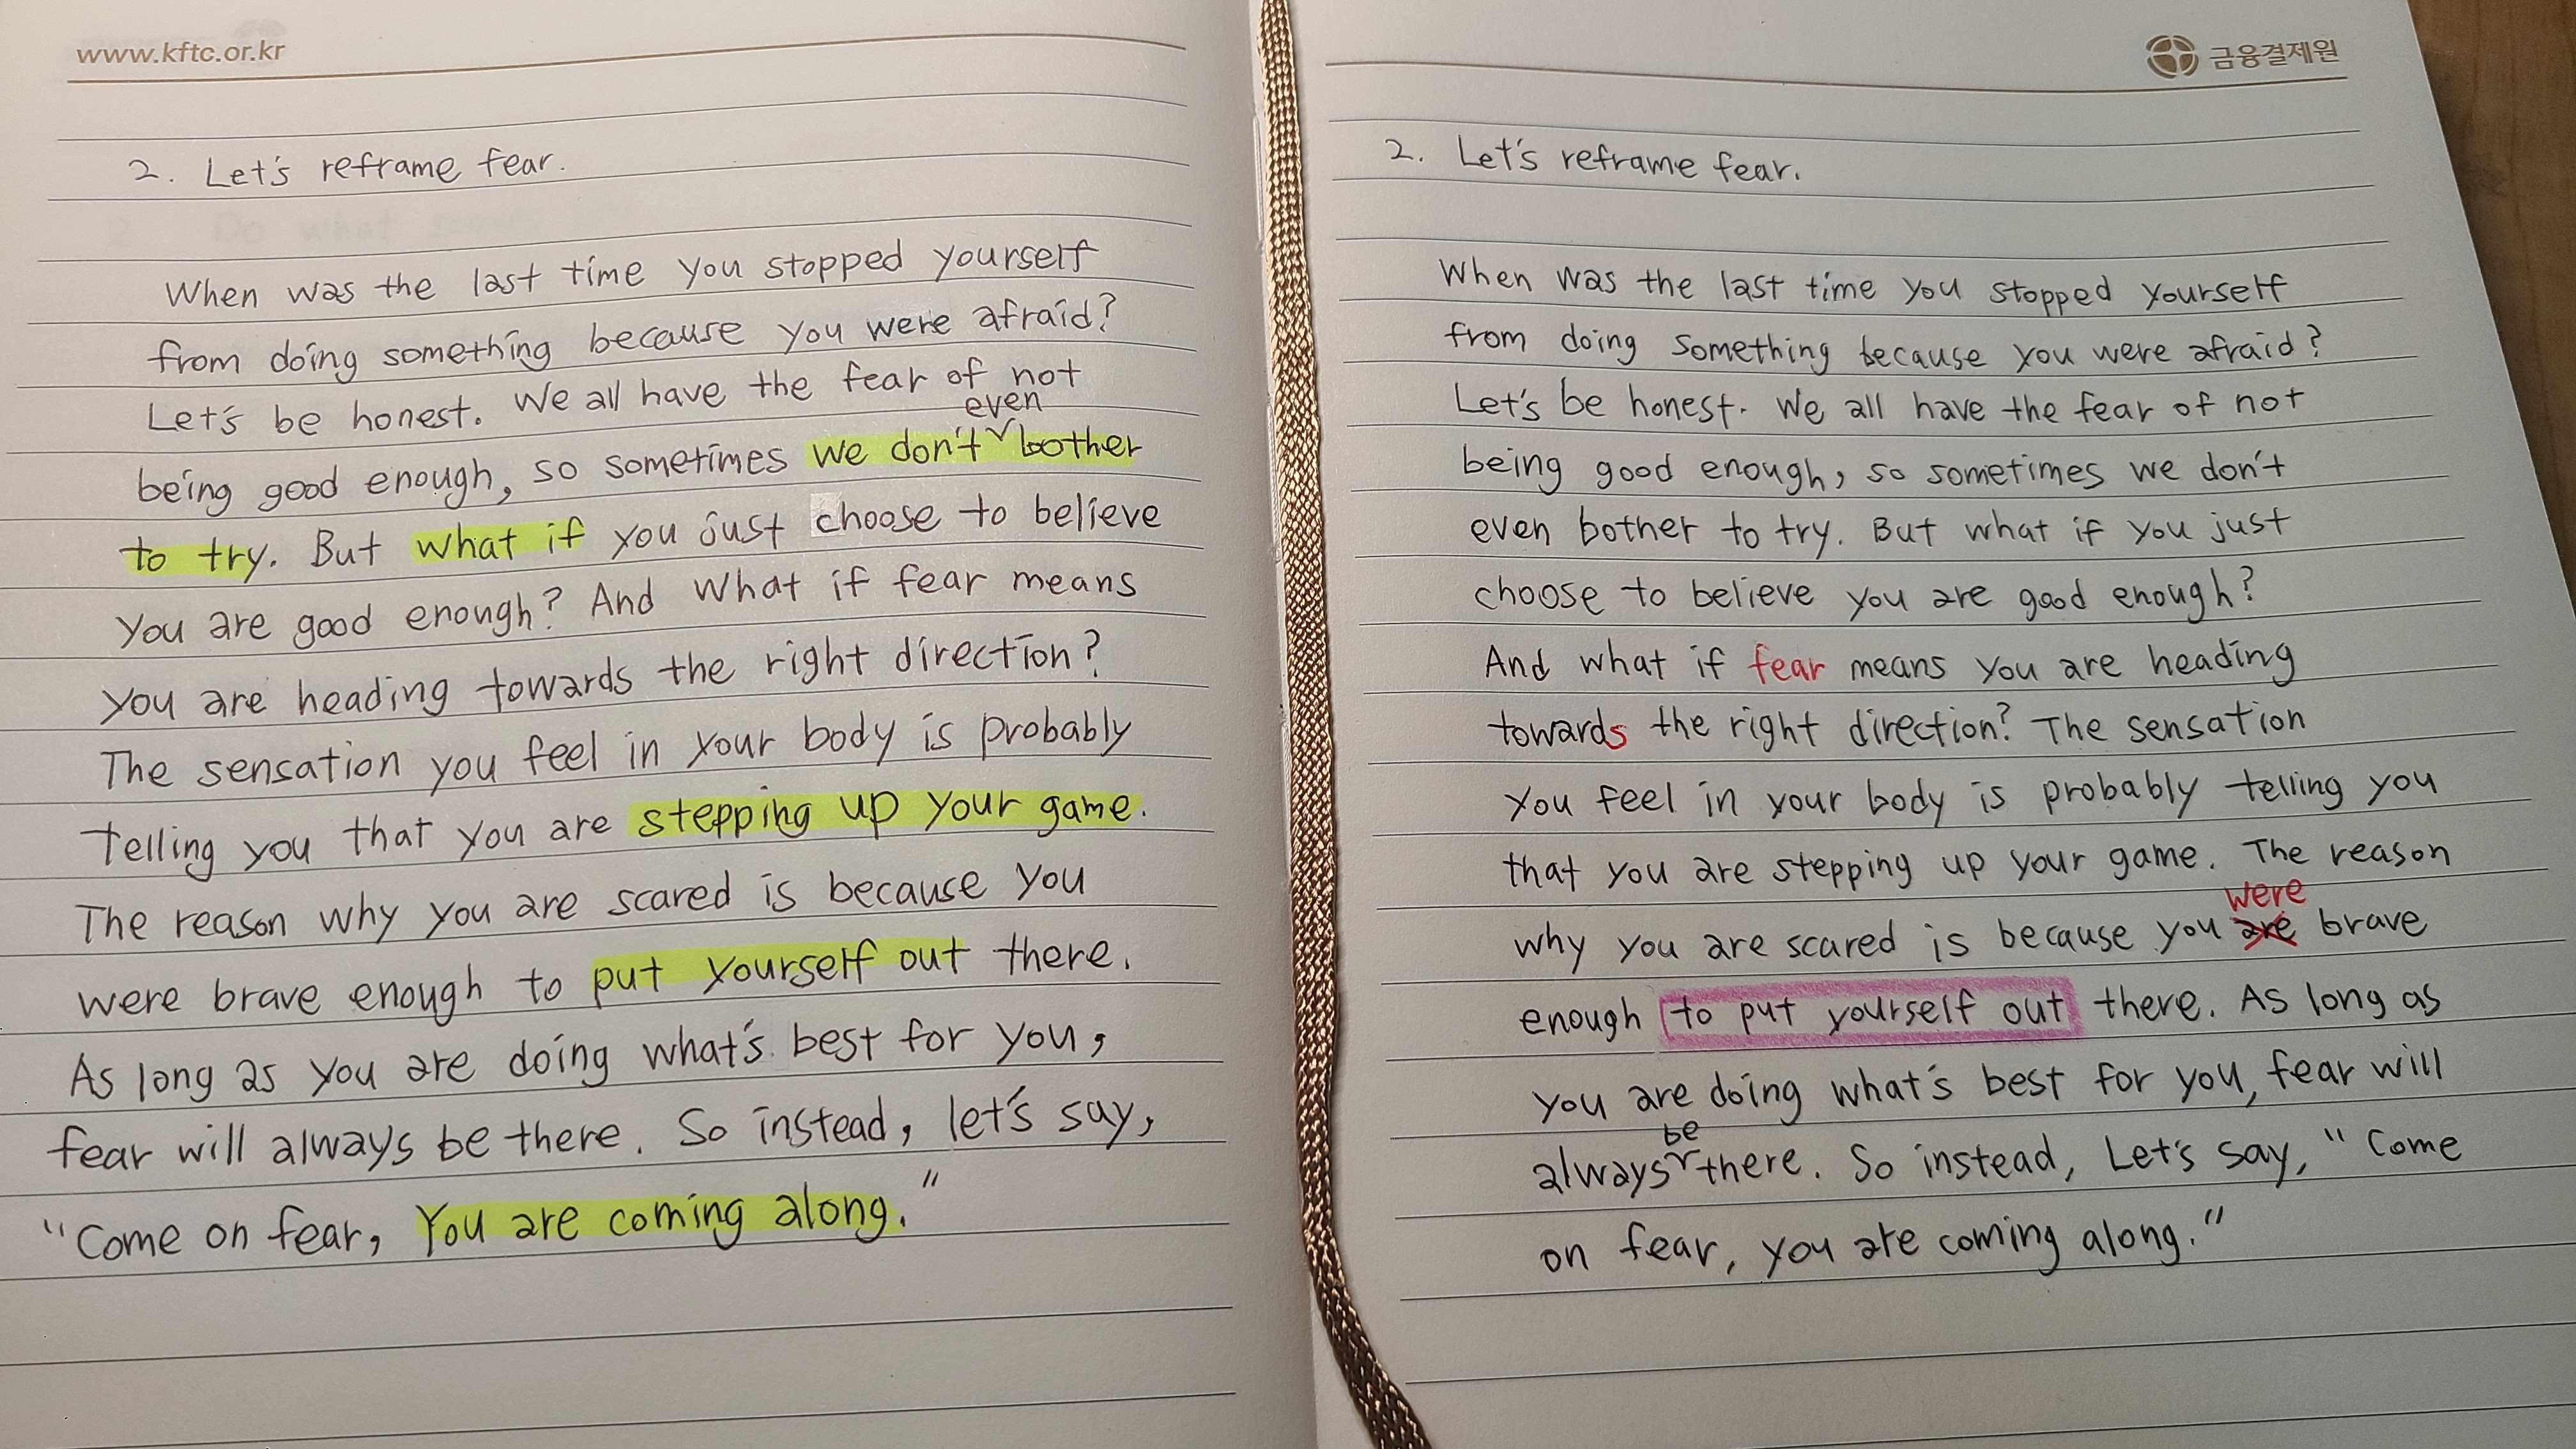 www.kftc.or.kr
2. Let's reframe fear.
When was the last time you stopped yourself
from doing something because you were afraid?
Let's be honest. We all have the fear of not
even
being good enough, so sometimes we don't bother
to try. But what if you just choose to believe
you are good enough? And what if fear means
you are heading towards the right direction?
The sensation you feel in your body is probably
telling you that you are stepping up your game.
The reason why you are scared is because you
were brave enough to put yourself out there.
As long as you are doing what's best for you,
fear will always be there. So instead, let's say,
"Come on fear, You are coming along."
금융결제원
2. Let's reframe fear.
When was the last time you stopped yourself
from doing something because you were afraid?
Let's be honest. We all have the fear of not
being good enough, so sometimes we don't
even bother to try. But what if you just
choose to believe you are good enough?
And what if fear means you are heading
towards the right direction? The sensation
you feel in your body is probably telling you
that you are stepping up your game. The reason
were
why you are scared is because you are brave
enough to put yourself out there. As long as
you are doing what's best for you, fear will
be
always there. So instead, Let's say, "Come
on fear, you are coming along."